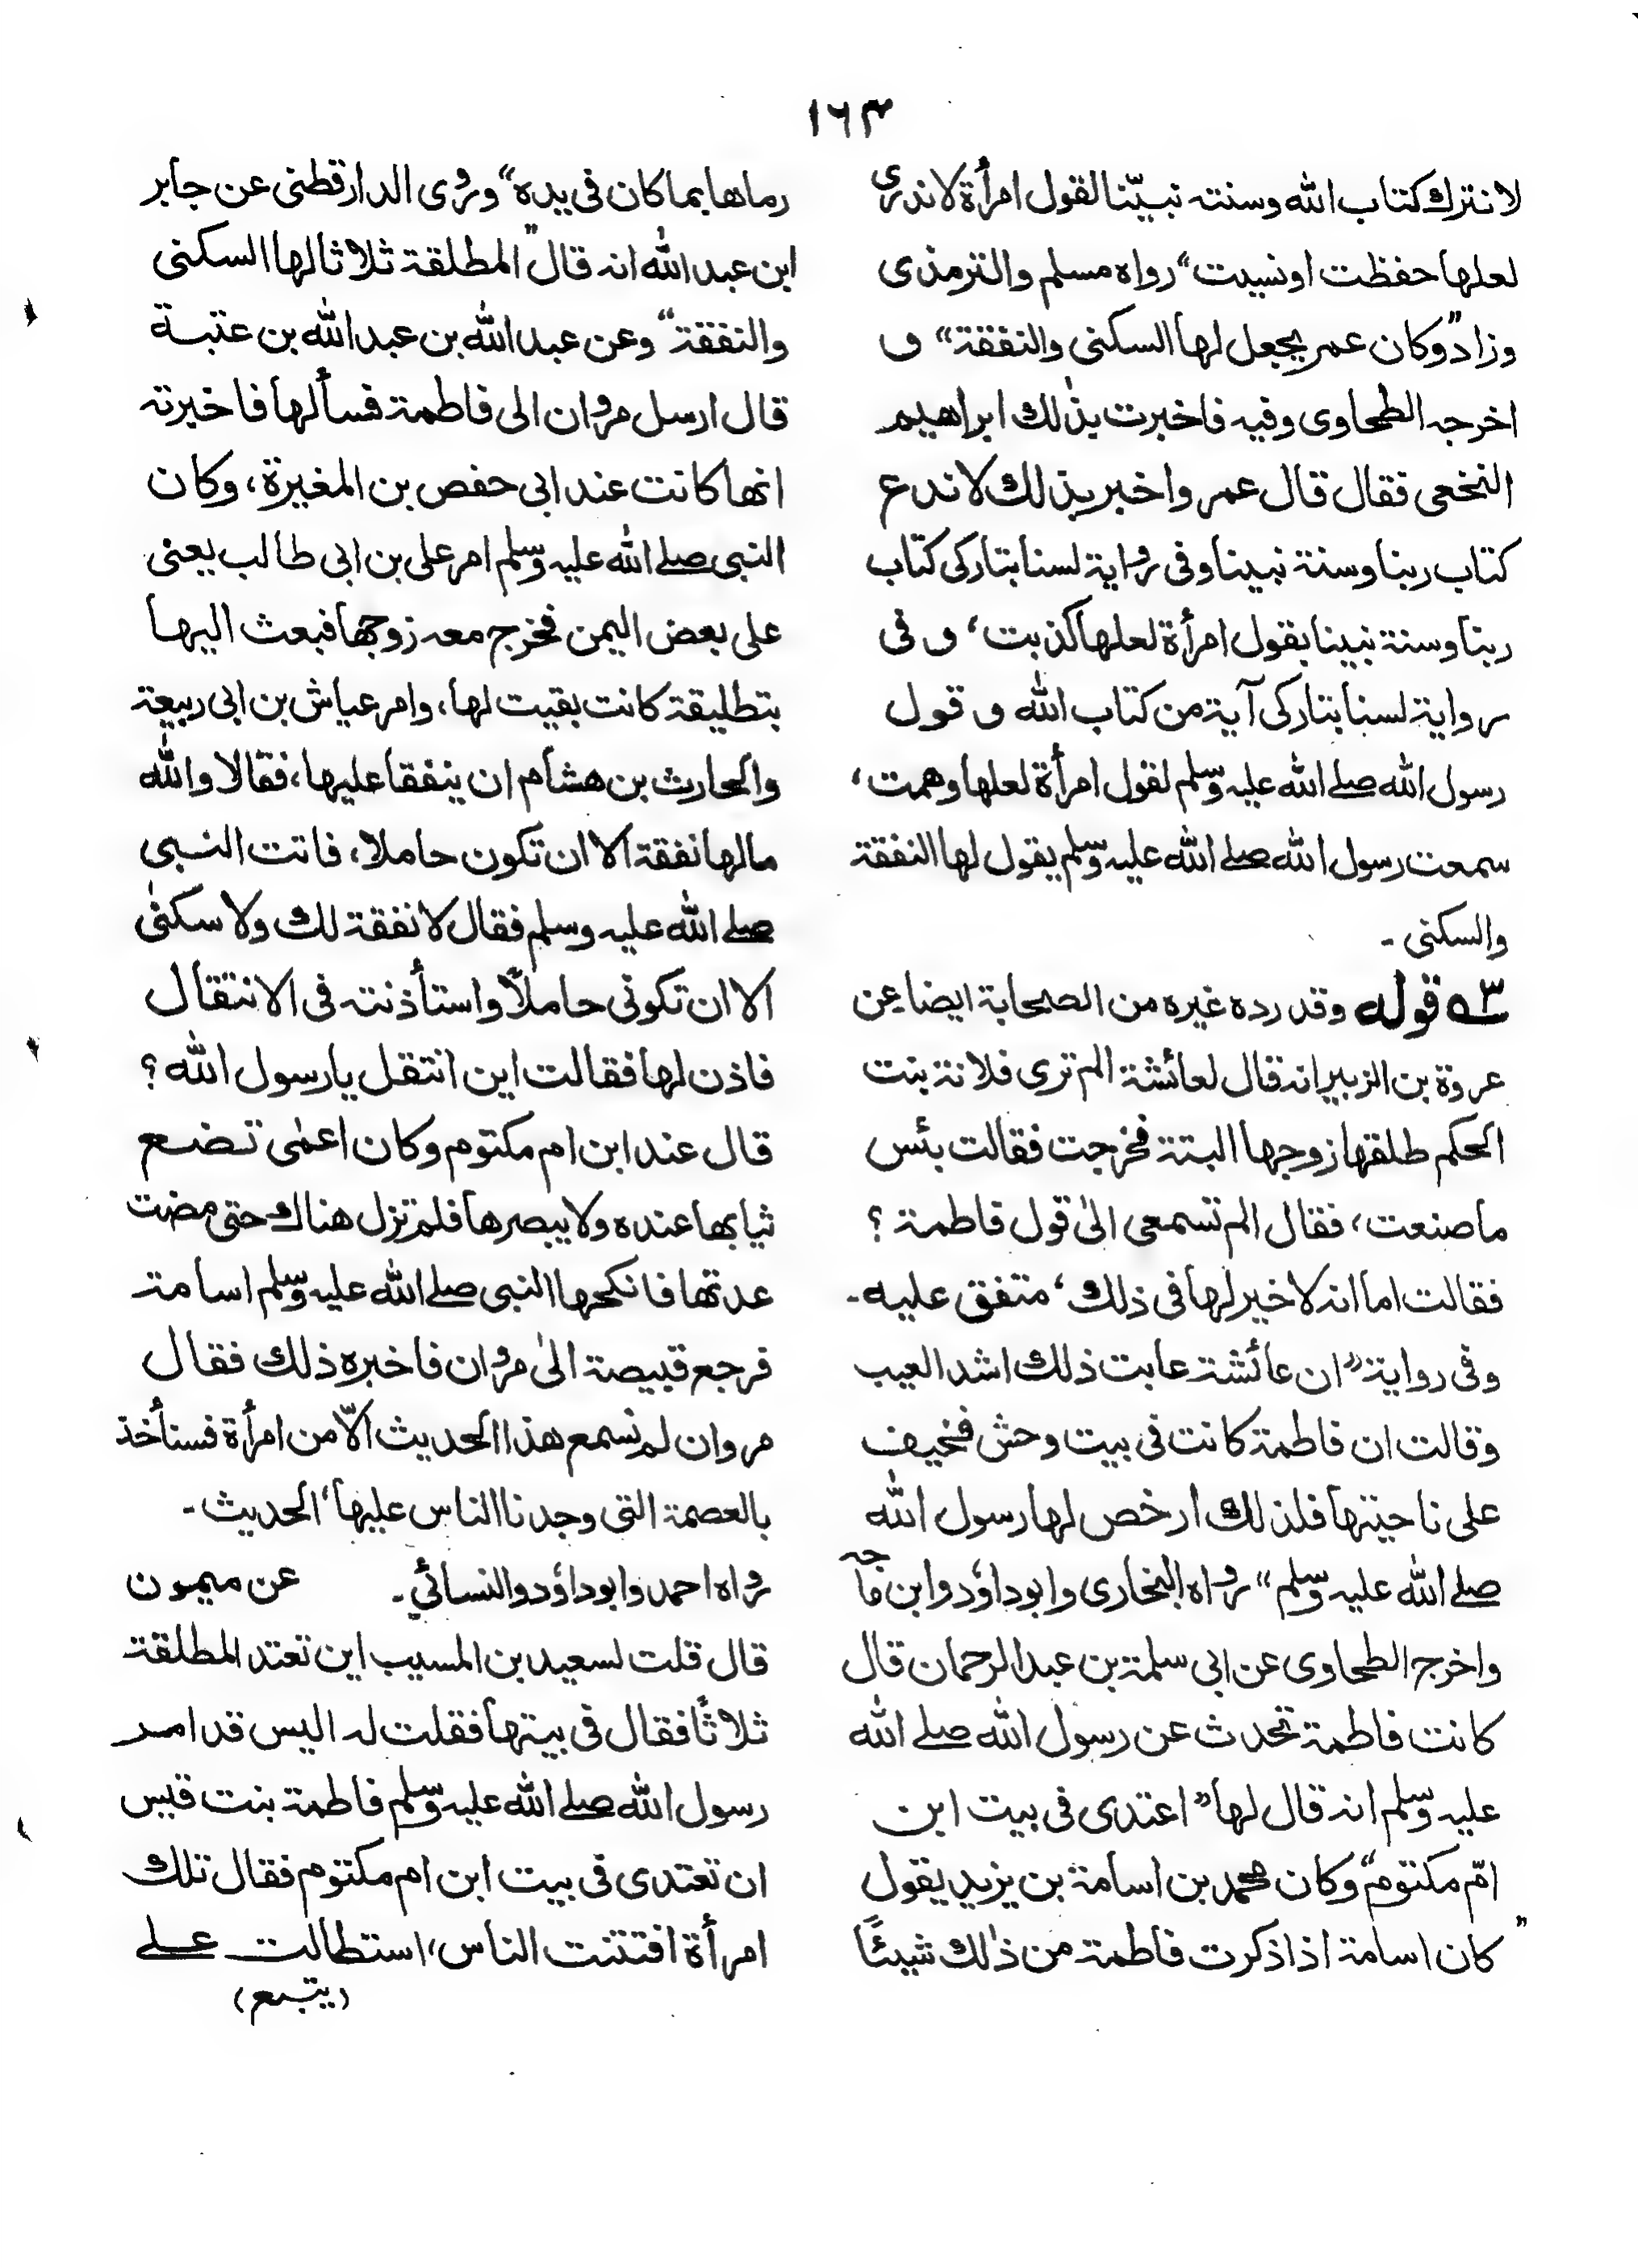 ۱۶۳
لا نترك كتاب الله وسنته نبيّنا لقول امرأة لا ندرى
لعلها حفظت او نسيت“ رواه مسلم والترمذى
وزاد”وكان عمر يجعل لها السكنى والنفقة“ و
اخرجه الطحاوى وفيه فاخبرت بذٰلك ابراهيم
النخعى فقال قال عمر واخبر بذلك لا ندع
كتاب ربنا وسنة نبينا وفى رواية لسنا بتاركى كتاب
ربنا وسنة نبينا بقول امرأة لعلها كذبت، و فى
رواية لسنا بتاركى آية من كتاب الله و قول
رسول الله صلے الله عليه وسلم لقول امرأة لعلها وهمت،
سمعت رسول الله صلے الله عليه وسلم يقول لها النفقة
والسكنى ۔
۵۳ قوله وقد رده غيره من الصحابة ايضا عن
عروة بن الزبير انه قال لعائشة الم ترى فلانة بنت
الحكم طلقها زوجها البتة فخرجت فقالت بئس
ما صنعت، فقال الم تسمعى الىٰ قول فاطمة ؟
فقالت اما انه لا خير لها فى ذلك، متفق عليه۔
وفى رواية” ان عائشة عابت ذلك اشد العيب
وقالت ان فاطمة كانت فى بيت وحش فخيف
على ناحيتها فلذلك ارخص لها رسول الله
صلے الله عليه وسلم“ رواه البخارى وابوداؤد وابن ماجه
واخرج الطحاوى عن ابى سلمة بن عبدالرحمان قال
كانت فاطمة تحدث عن رسول الله صلے الله
عليه وسلم انه قال لها” اعتدى فى بيت ابن
امّ مكتوم“ وكان محمد بن اسامة بن يزيد يقول
”كان اسامة اذا ذكرت فاطمة من ذٰلك شيئًا
رماها بما كان فى يده“ وروى الدارقطنى عن جابر
ابن عبد الله انه قال ”المطلقة ثلاثا لها السكنى
والنفقة“ وعن عبد الله بن عبد الله بن عتبة
قال ارسل مروان الى فاطمة فسألها فاخبرته
انها كانت عند ابى حفص بن المغيرة، وكان
النبى صلے الله عليه وسلم امر على بن ابى طالب يعنى
على بعض اليمن فخرج معه زوجها فبعث اليها
بتطليقة كانت بقيت لها، وامر عياش بن ابى ربيعة
والحارث بن هشام ان ينفقا عليها، فقالا والله
مالها نفقة الا ان تكون حاملا، فاتت النبى
صلے الله عليه وسلم فقال لا نفقة لك ولا سكنىٰ
الا ان تكونى حاملاً واستأذنته فى الانتقال
فاذن لها فقالت اين انتقل يا رسول الله ؟
قال عند ابن ام مكتوم وكان اعمٰى تضع
ثيابها عنده ولا يبصرها فلم تزل هناك حتى مضت
عدتها فانكحها النبى صلے الله عليه وسلم اسامة
فرجع قبيصة الىٰ مروان فاخبره ذلك فقال
مروان لم نسمع هذا الحديث الّا من امرأة فسنأخذ
بالعصمة التى وجدنا الناس عليها، الحديث ۔
رواه احمد وابوداؤد والنسائي ۔ عن ميمون
قال قلت لسعيد بن المسيب اين تعتد المطلقة
ثلاثًا فقال فى بيتها فقلت له اليس قد امر
رسول الله صلے الله عليه وسلم فاطمة بنت قيس
ان تعتدى فى بيت ابن ام مكتوم فقال تلك
امرأة افتتنت الناس، استطالت علے
(يتبع)